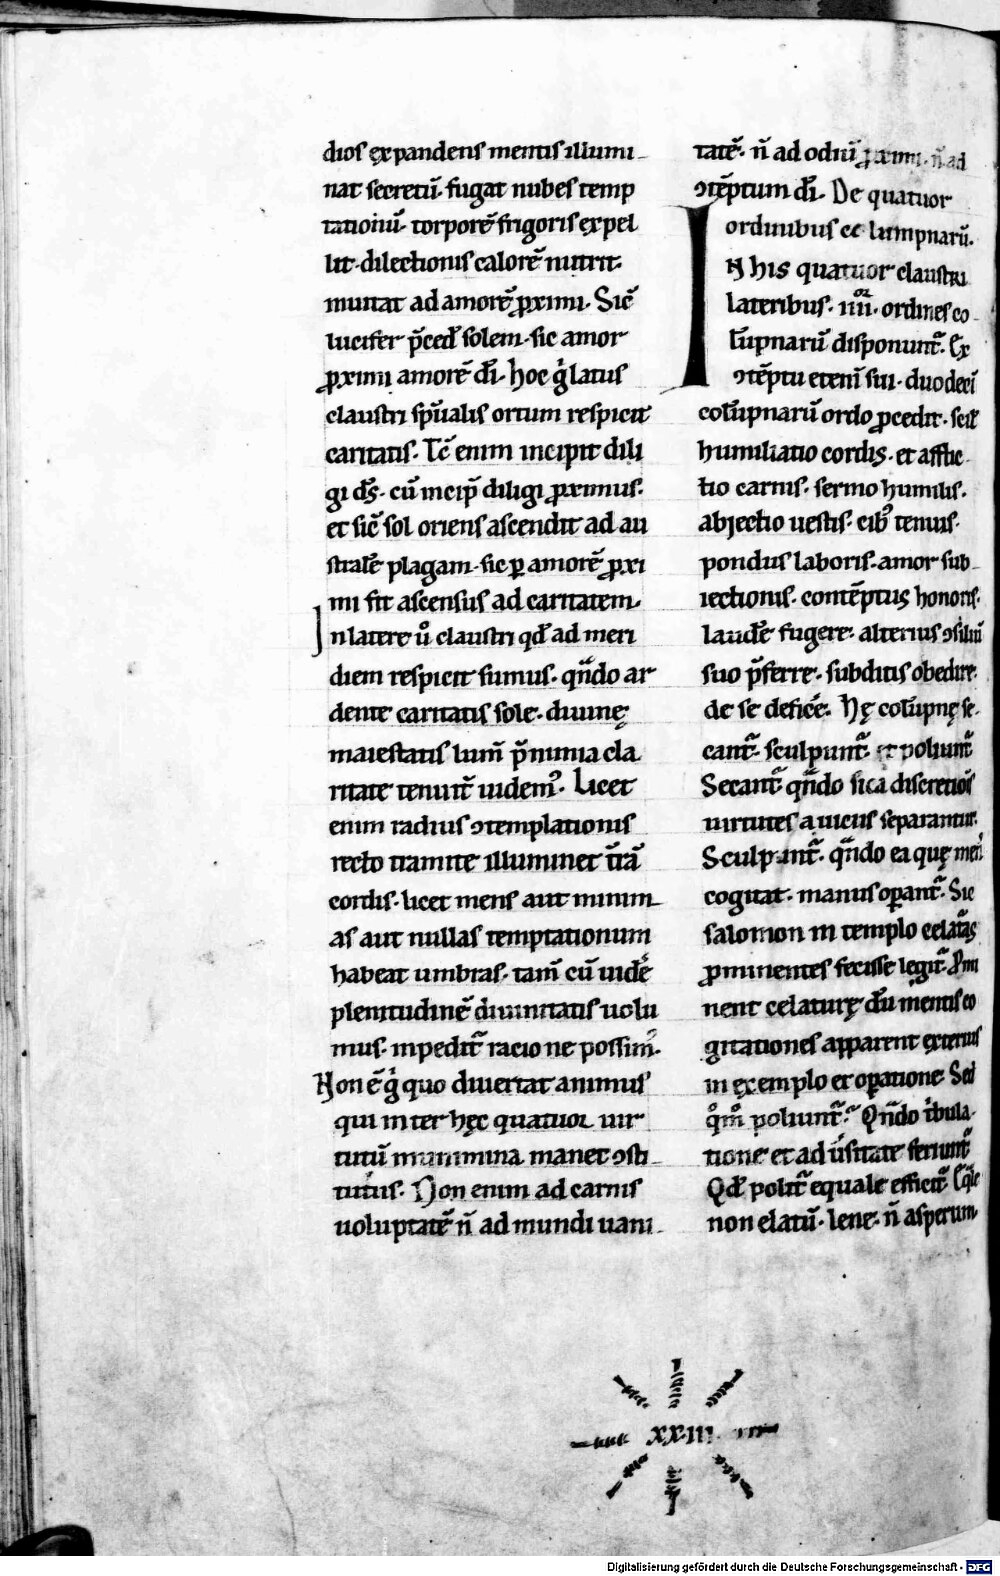 dios ęxpandens mentis illumi
nat secretū. fugat nubes temp
tationū. torporē frigoris ęxpel
lit. dilectionis calorē nutrit.
mutat ad amorē ꝓximi. Sic̄
lucifer p̄ced̄ solem. sic amor
ꝓximi amorē dī. hoc gͥ latus
claustri sp̄ualis ortum respicit
caritatis. Tc̄ enim incipit dili
gi ds̄. cū incip̄ diligi ꝓximus.
et sic̄ sol oriens ascendit ad au
stralē plagam. sic ꝑ amorē ꝓxi
mi fit ascensus ad caritatem.
In latere uͦ claustri qd̄ ad meri
diem respicit sumus. qn̄do ar
dente caritatis sole. diuinę
maiestatis lum̄ p̄ nimia cla
ritate tenuit᷑ uidemꝰ. Licet
enim radius ꝯtemplationis
recto tramite illuminet t̄rā
cordis. licet mens aut minim
as aut nullas temptationum
habeat umbras. tam̄ cū uidē
plenitudinē diuinitatis uolu
mus. inpedit᷑ racione possim᷒.
Non ē gͥ quo diuertat animus
qui inter hęc quatuor uir
tutū munimina manet ꝯsti
tutus. Non enim ad carnis
uoluptatē n̄ ad mundi uani
tatē. n̄ ad odiū ꝓximi. n̄ ad
ꝯtēptum dī. De quatuor
ordinibus columpnarū.
IN his quatuor claustri
lateribus. iiii.or ordines co
lūpnarū disponunt᷑. Ex
ꝯtēptu etenī sui. duodeci
colūpnarū ordo ꝓcedit. scil̄
humiliatio cordis. et afflic
tio carnis. sermo humilis.
abiectio uestis. cibꝰ tenuis.
pondus laboris. amor sub
iectionis. contēptus honoris.
laudē fugere. alterius ꝯsiliū
suo p̄ferre. subditis obedire.
de se defice᷑. Hę colūpnę se
cant᷑. sculpunt᷑. et poliunt᷑
Secant᷑ qn̄do sica discretiois̄
uirtutes a uiciis separantur.
Sculpunt᷑. qn̄do ea quę men̄
cogitat. manus oꝑant᷑. Sic
salomon in templo celatas᷑
ꝓminentes fecisse legit᷑. Ꝓmi
nent celaturę dū mentis co
gitationes apparent ęxterius
in ęxemplo et oꝑatione. Sed
qͦm̊ poliunt᷑. Qn̄do tͥbula
tione et aduͥsitate feriunt᷑
Qd̄ polit᷑ equale efficit᷑. Eq̄le
non elatū. lene. n̄ asperum.
XXIII
Digitalisierung gefördert durch die Deutsche Forschungsgemeinschaft - DFG